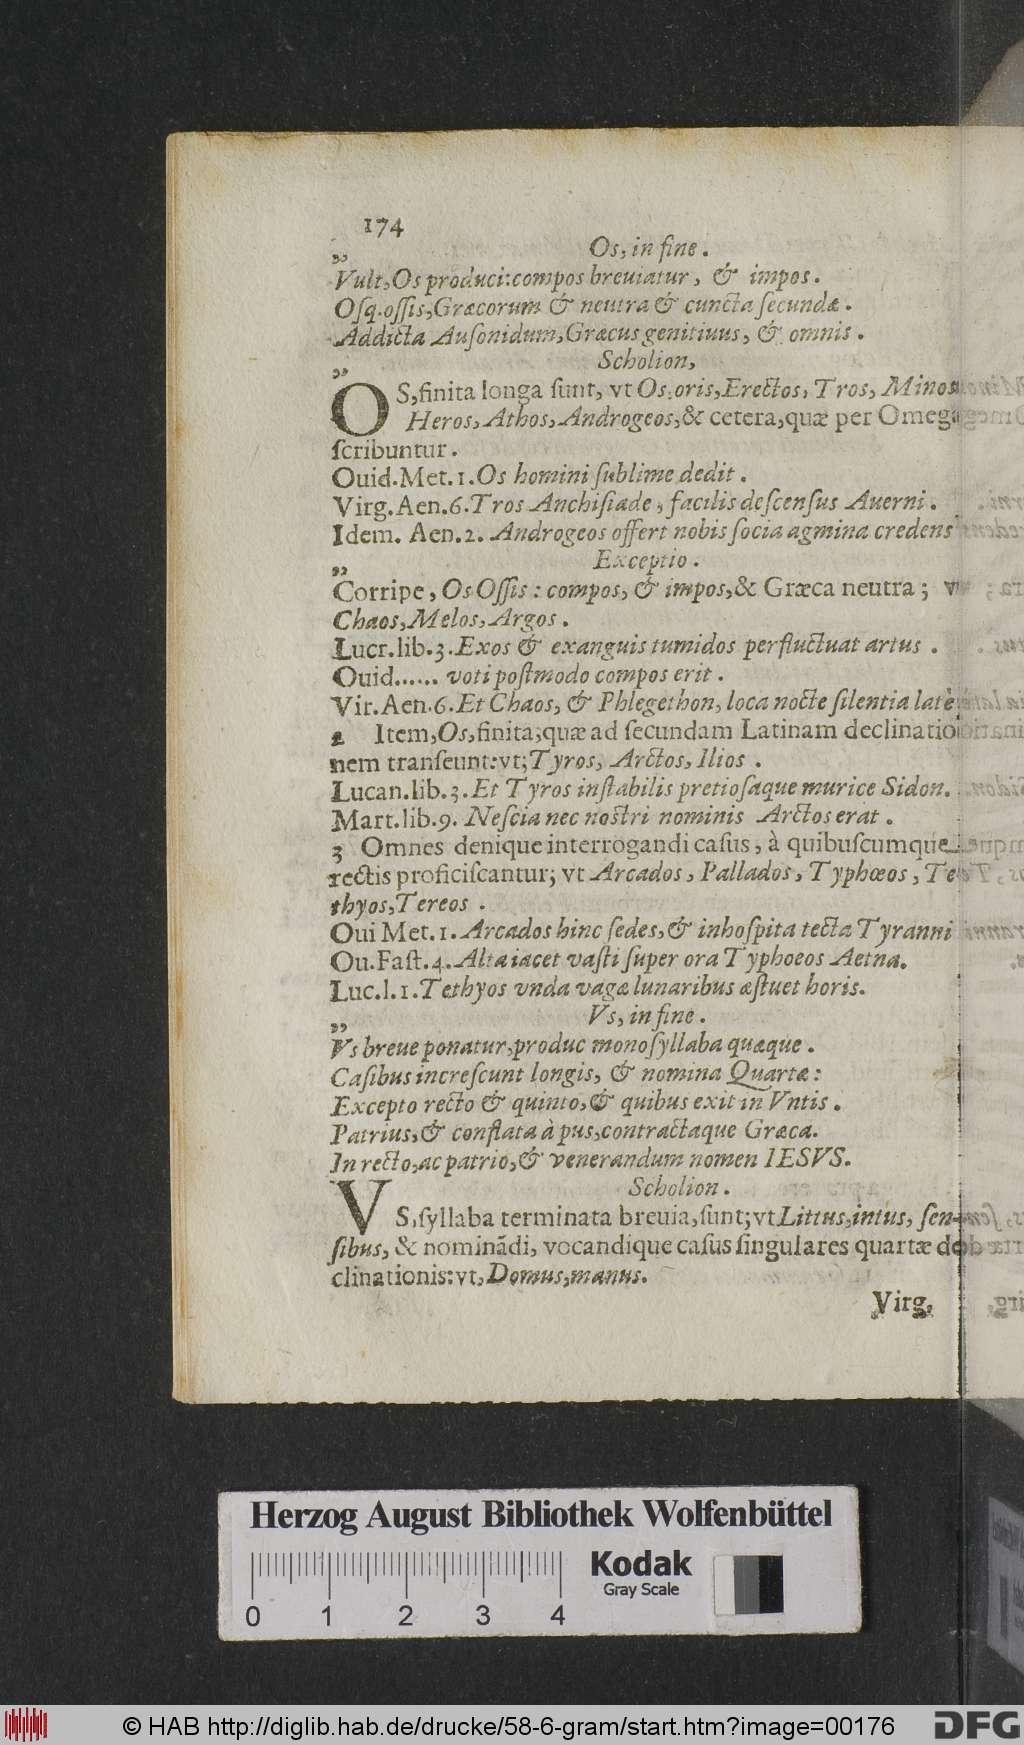 174
Os, in fine.
„
Vult, Os produci: compos breuiatur, & impos.
Osq. ossis, Græcorum & neutra & cuncta secundæ.
Addicta Ausonidum, Græcus genitiuus, & omnis.
Scholion,
„
OS, finita longa sunt, vt Os, oris, Erectos, Tros, Minos
Heros, Athos, Androgeos, & cetera, quæ per Omega
scribuntur.
Ouid. Met. 1. Os homini sublime dedit.
Virg. Aen. 6. Tros Anchisiade, facilis descensus Auerni.
Idem. Aen. 2. Androgeos offert nobis socia agmina credens
Exceptio.
„
Corripe, Os Ossis: compos, & impos, & Græca neutra; vt
Chaos, Melos, Argos.
Lucr. lib. 3. Exos & exanguis tumidos perfluctuat artus.
Ouid...... voti postmodo compos erit.
Vir. Aen. 6. Et Chaos, & Phlegethon, loca nocte silentia latè
2 Item, Os, finita; quæ ad secundam Latinam declinatio
nem transeunt: vt; Tyros, Arctos, Ilios.
Lucan. lib. 3. Et Tyros instabilis pretiosaque murice Sidon.
Mart. lib. 9. Nescia nec nostri nominis Arctos erat.
3 Omnes denique interrogandi casus, à quibuscumque
rectis proficiscantur; vt Arcados, Pallados, Typhœos, Te
thyos, Tereos.
Oui Met. 1. Arcados hinc sedes, & inhospita tecta Tyranni
Ou. Fast. 4. Alta iacet vasti super ora Typhoeos Aetna.
Luc. l. 1. Tethyos vnda vagæ lunaribus æstuet horis.
Vs, in fine.
„
Vs breue ponatur, produc monosyllaba quæque.
Casibus increscunt longis, & nomina Quartæ:
Excepto recto & quinto, & quibus exit in Vntis.
Patrius, & conflata à pus, contractaque Græca.
In recto, ac patrio, & venerandum nomen IESVS.
Scholion.
VS, syllaba terminata breuia, sunt; vt Littus, intus, sen-
sibus, & nominãdi, vocandique casus singulares quartæ de
clinationis: vt, Domus, manus.
Virg,
Herzog August Bibliothek Wolfenbüttel
Kodak
Gray Scale
0 1 2 3 4
© HAB http://diglib.hab.de/drucke/58-6-gram/start.htm?image=00176
DFG